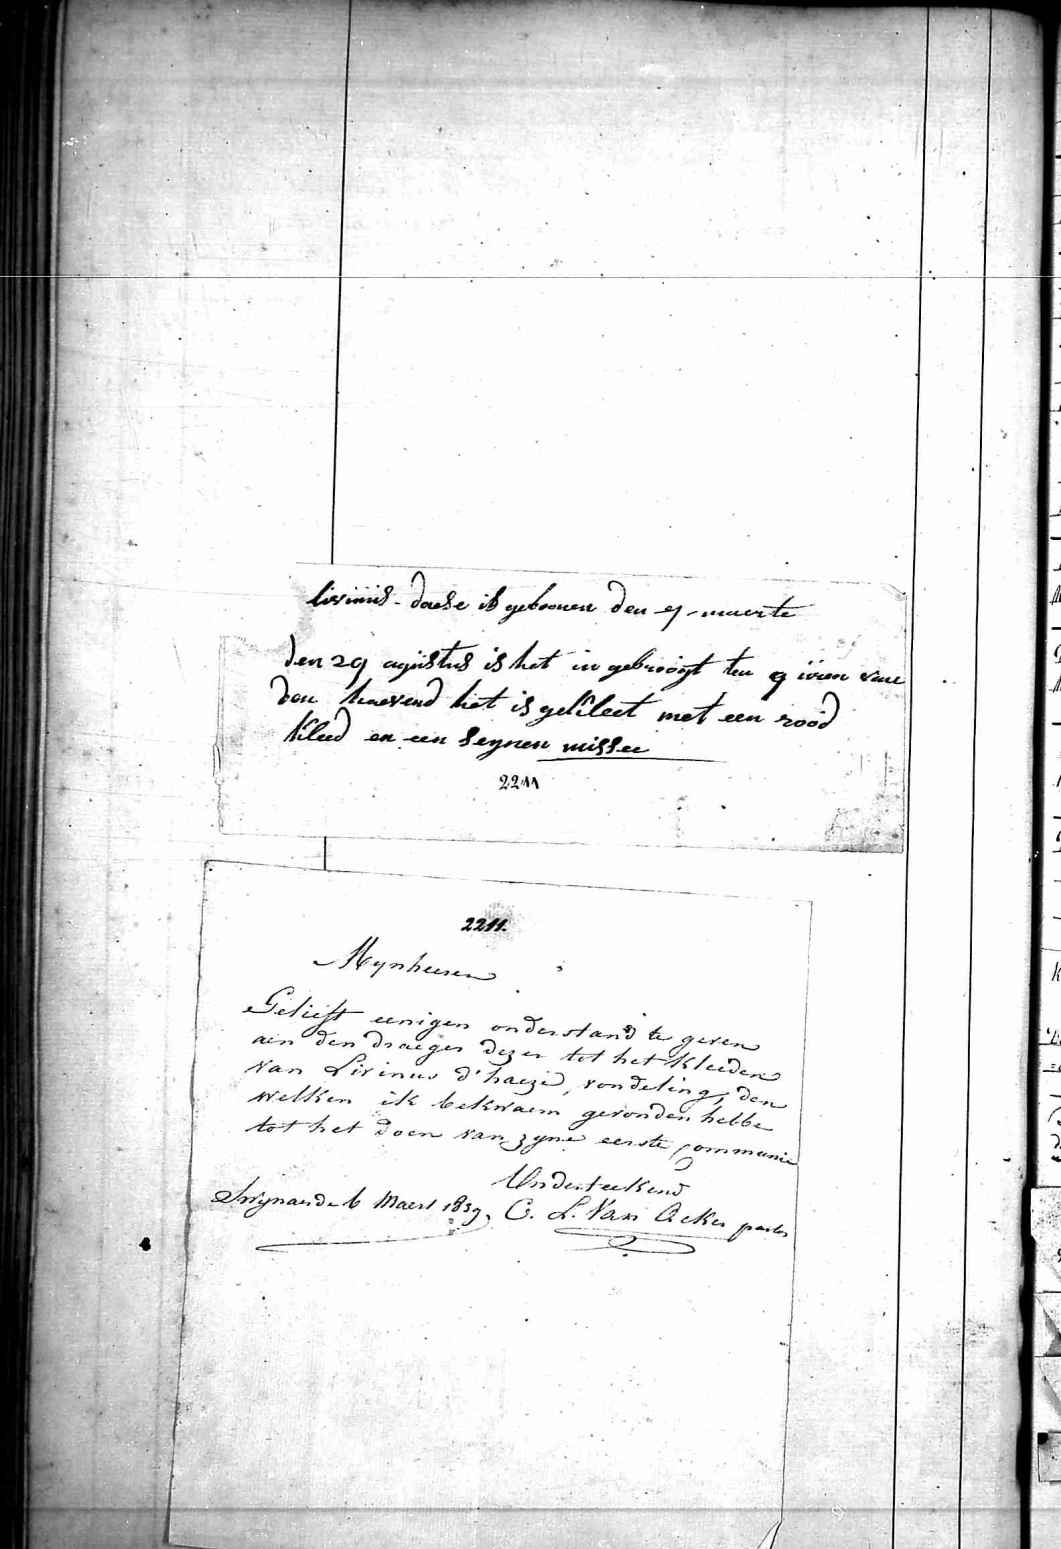 livinis - daese is geboonen den 9 - maerte
den 29 agustus is het in gebroogt ten 9 uren van
den haevend het is gekleet met een rood
kleed en een seynen missee
2211
2211.
Mynheeren
Gelieft eenigen onderstand te geven
aen den draeger dezer tot het kleeden
van Livinus d'haeze, vondeling, den
welken ik bekwaem gevonden hebbe
tot het doen van zyne eerste communie
Onderteekend
Swynaerde 6 Maert 1839. C. L. Van Acker pastor